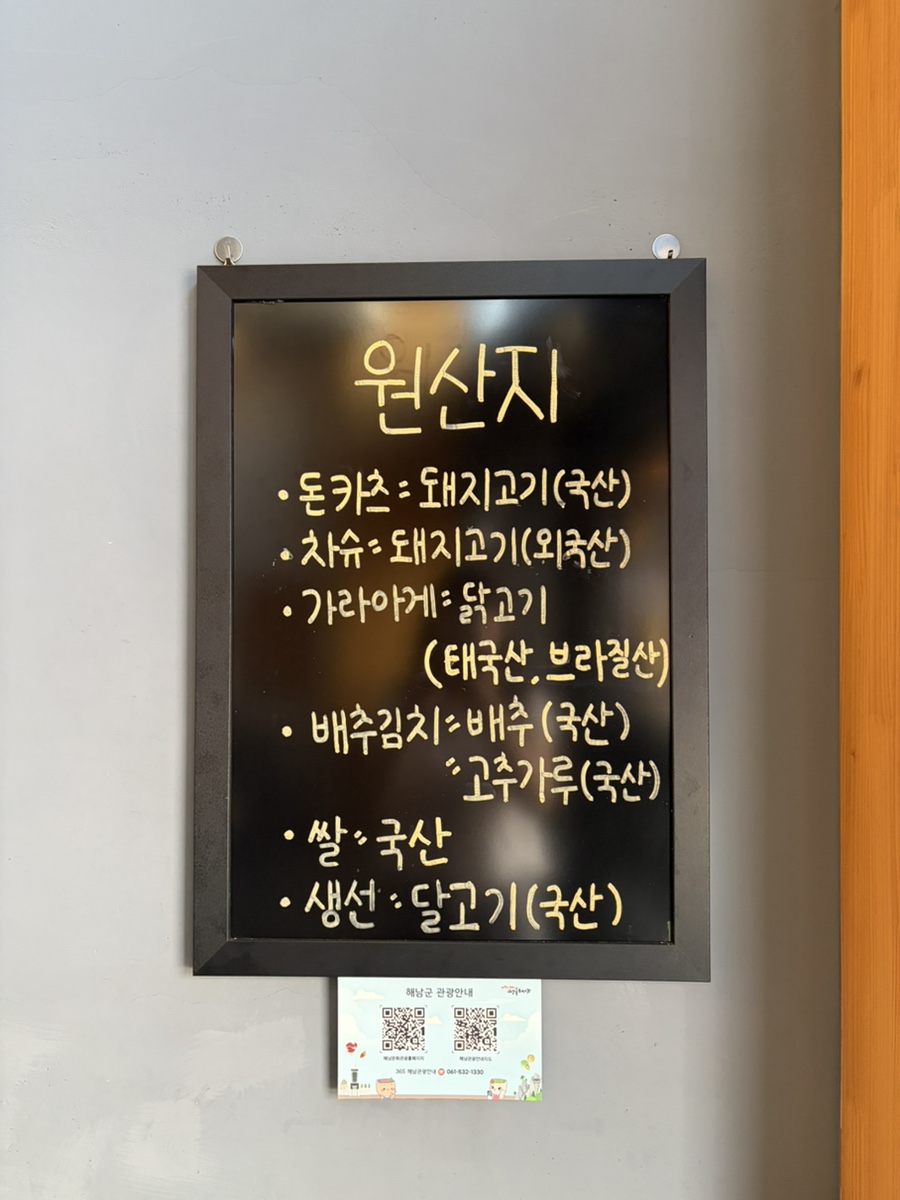 원산지
• 돈카츠 : 돼지고기(국산)
• 차슈 : 돼지고기(외국산)
• 가라아게 : 닭고기
(태국산, 브라질산)
• 배추김치 : 배추(국산)
: 고추가루(국산)
• 쌀 : 국산
• 생선 : 달고기(국산)
해남군 관광안내
해남문화관광홈페이지 해남관광안내지도
365 해남관광안내 ☎ 061-532-1330